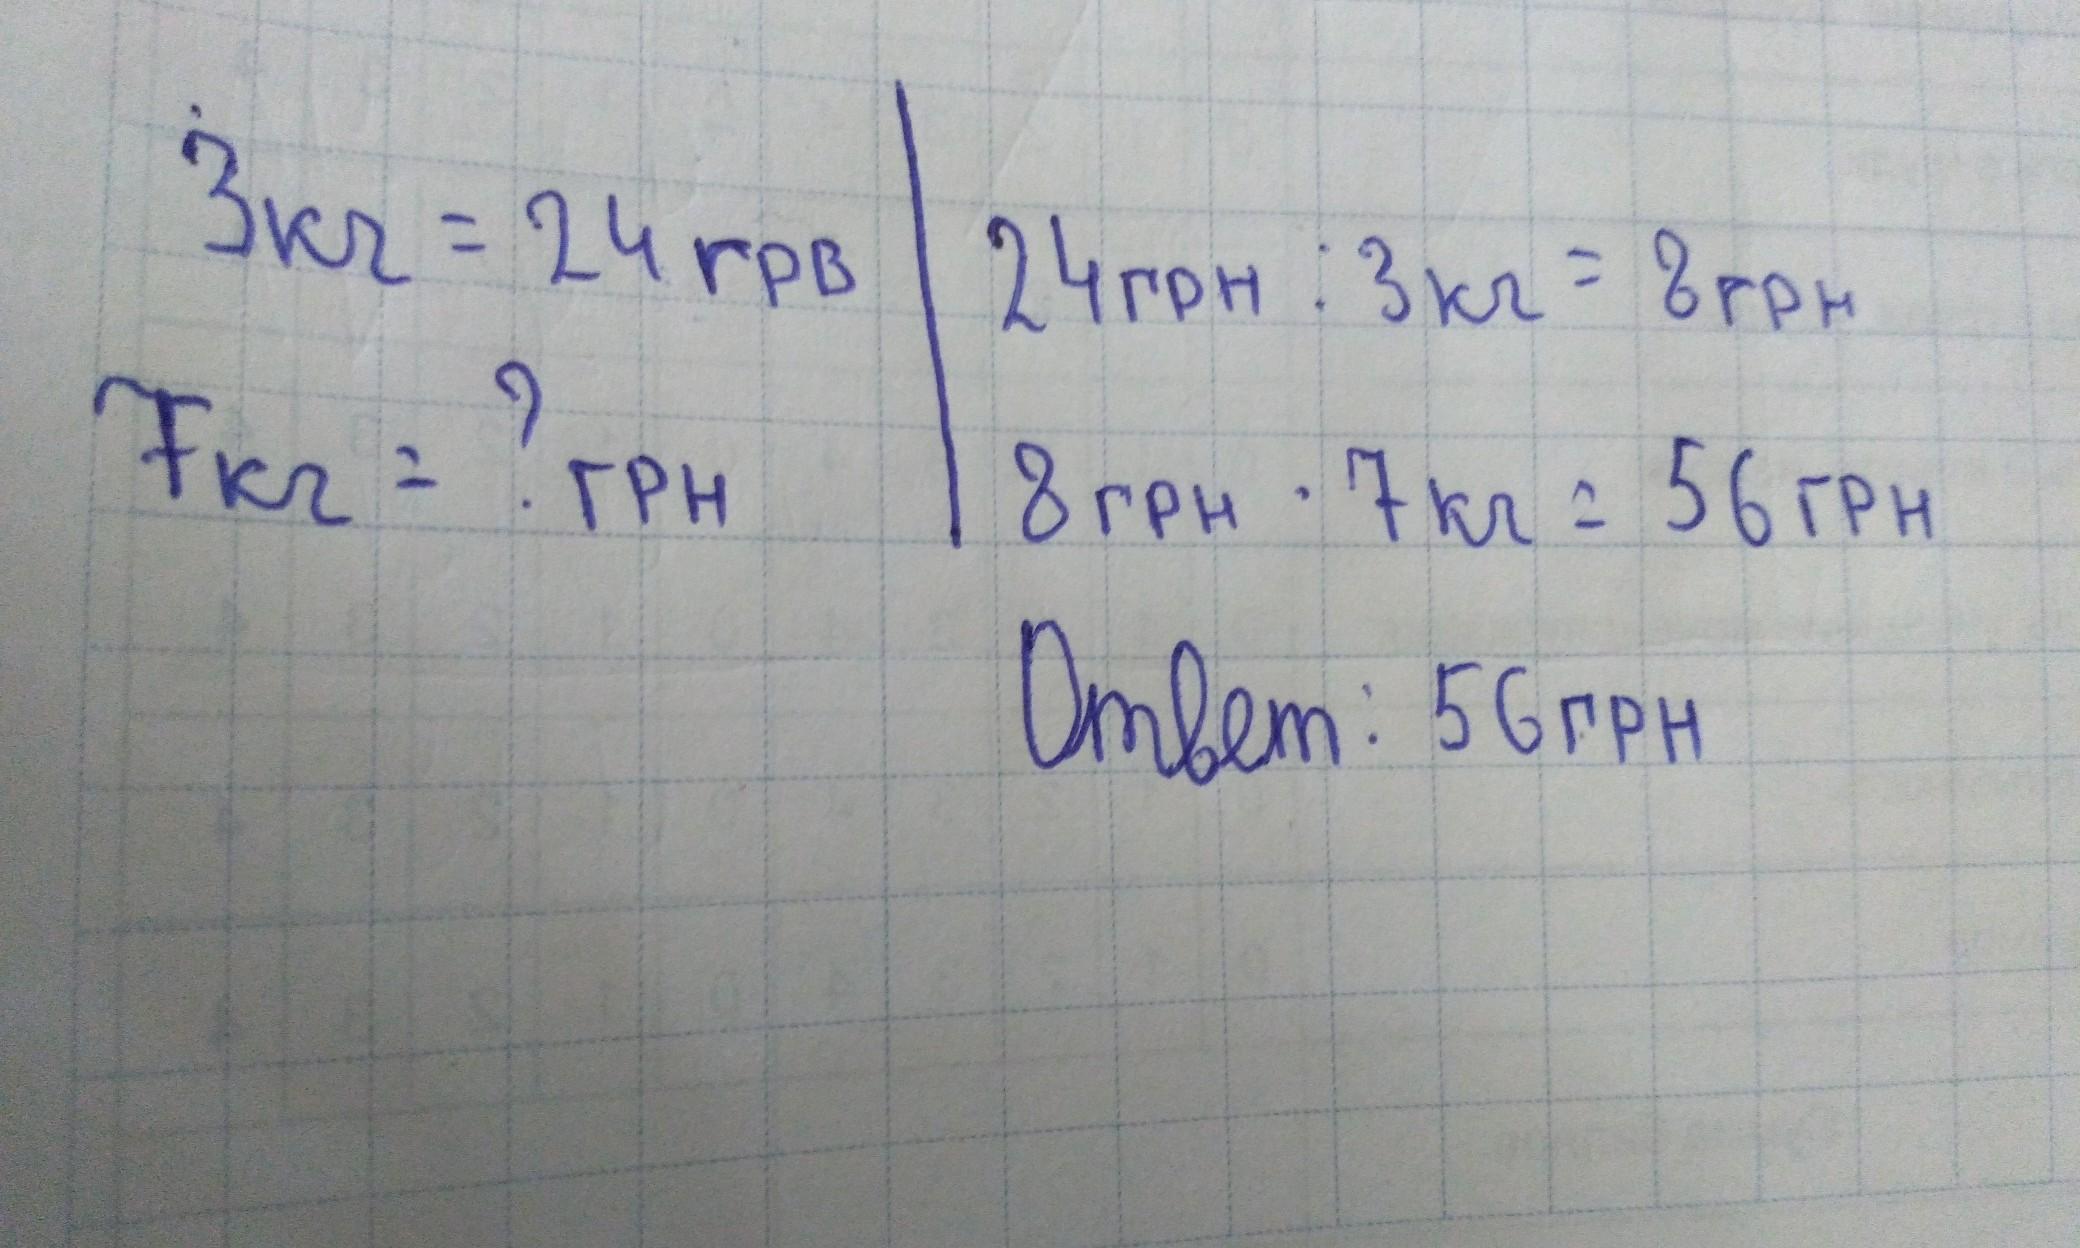 3кг = 24 грв
7кг = ? грн
24грн : 3кг = 8грн
8грн · 7кг = 56грн
Ответ: 56грн